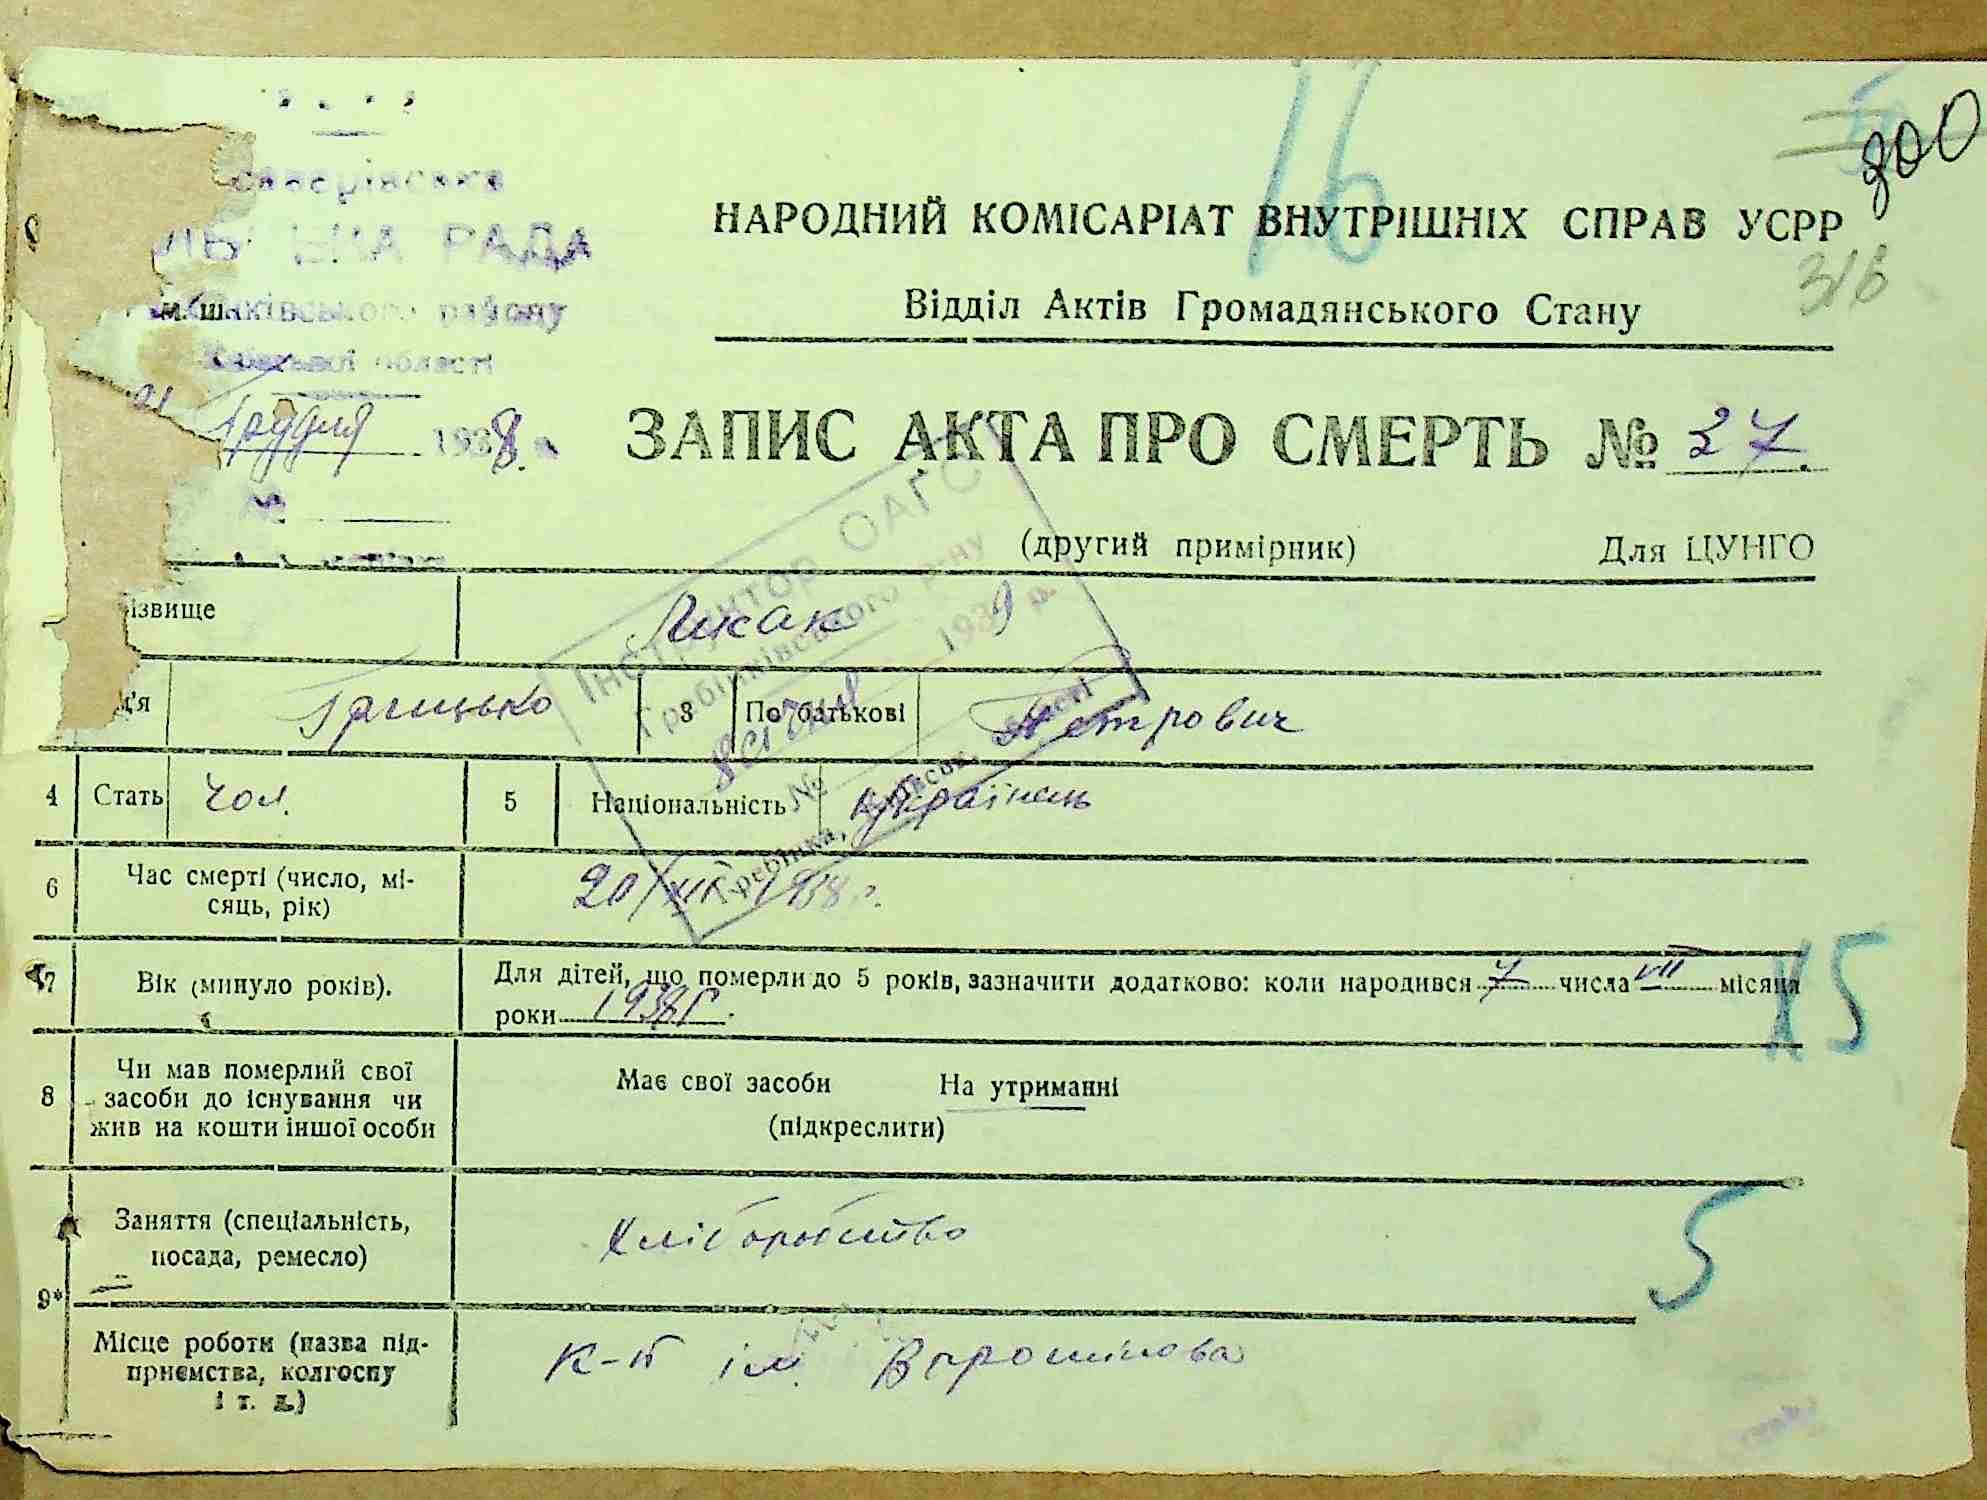 16
200
РАДА
району
області
Грудня 1938 р.
НАРОДНИЙ КОМІСАРІАТ ВНУТРІШНІХ СПРАВ УСРР
316
Відділ Актів Громадянського Стану
ЗАПИС АКТА ПРО СМЕРТЬ № 37.
(другий примірник) Для ЦУНГО
Інструктор ОАГС
Гребінківського р-ну
1939 р.
№
ізвище Лисак
м'я Грицько 3 По батькові Петрович
4 Стать чол. 5 Національність Українець
6 Час смерті (число, мі-
сяць, рік) 20/XII 1938 р.
7 Вік (минуло років). Для дітей, що померли до 5 років, зазначити додатково: коли народився 7 числа VII місяця
роки 1938 г.
Х5
8 Чи мав померлий свої
засоби до існування чи
жив на кошти іншої особи
Має свої засоби На утриманні
(підкреслити)
9* Заняття (спеціальність,
посада, ремесло) Хліборобство
5
Місце роботи (назва під-
приємства, колгоспу
і т. д.) К-п ім. Ворошилова